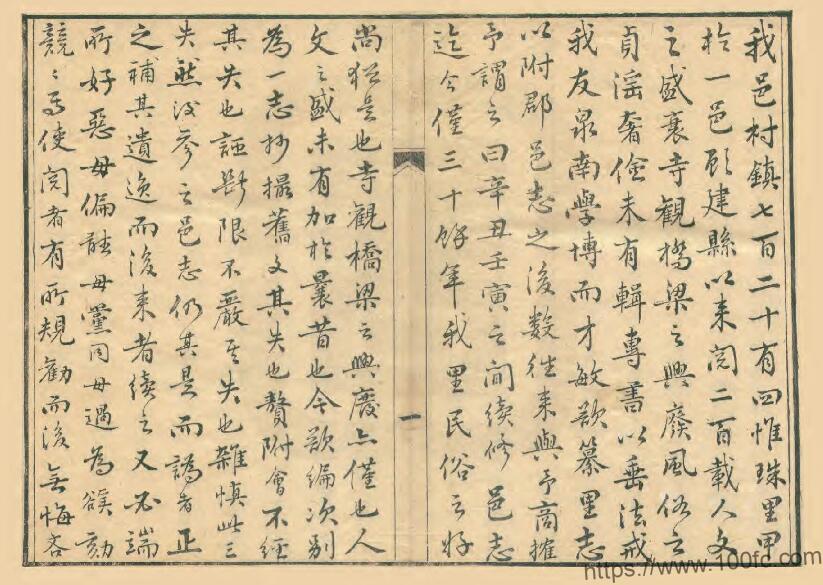 我邑村鎮七百二十有四惟珠里甲
於一邑顧建縣以來閱二百載人文
之盛衰寺觀橋梁之興廢風俗之
貞淫奢儉未有輯專書以垂法戒
我友泉南學博而才敏欲纂里志
以附郡邑志之後數往來與予商搉
予謂之曰辛丑壬寅之間續修邑志
迄今僅三十餘年我里民俗之好
一
尚猶是也寺觀橋梁之興廢亦僅也人
文之盛未有加於曩昔也今欲編次別
為一志抄撮舊文其失也贅附會不經
其失也誣斷限不嚴其失也雜慎此三
失然後參之邑志仍其是而譌者正
之補其遺逸而後來者續之又必端
所好惡毋偏詖毋黨同毋過為谿刻
競〻焉使閱者有所規勸而後無悔吝
https://www.100fc.com